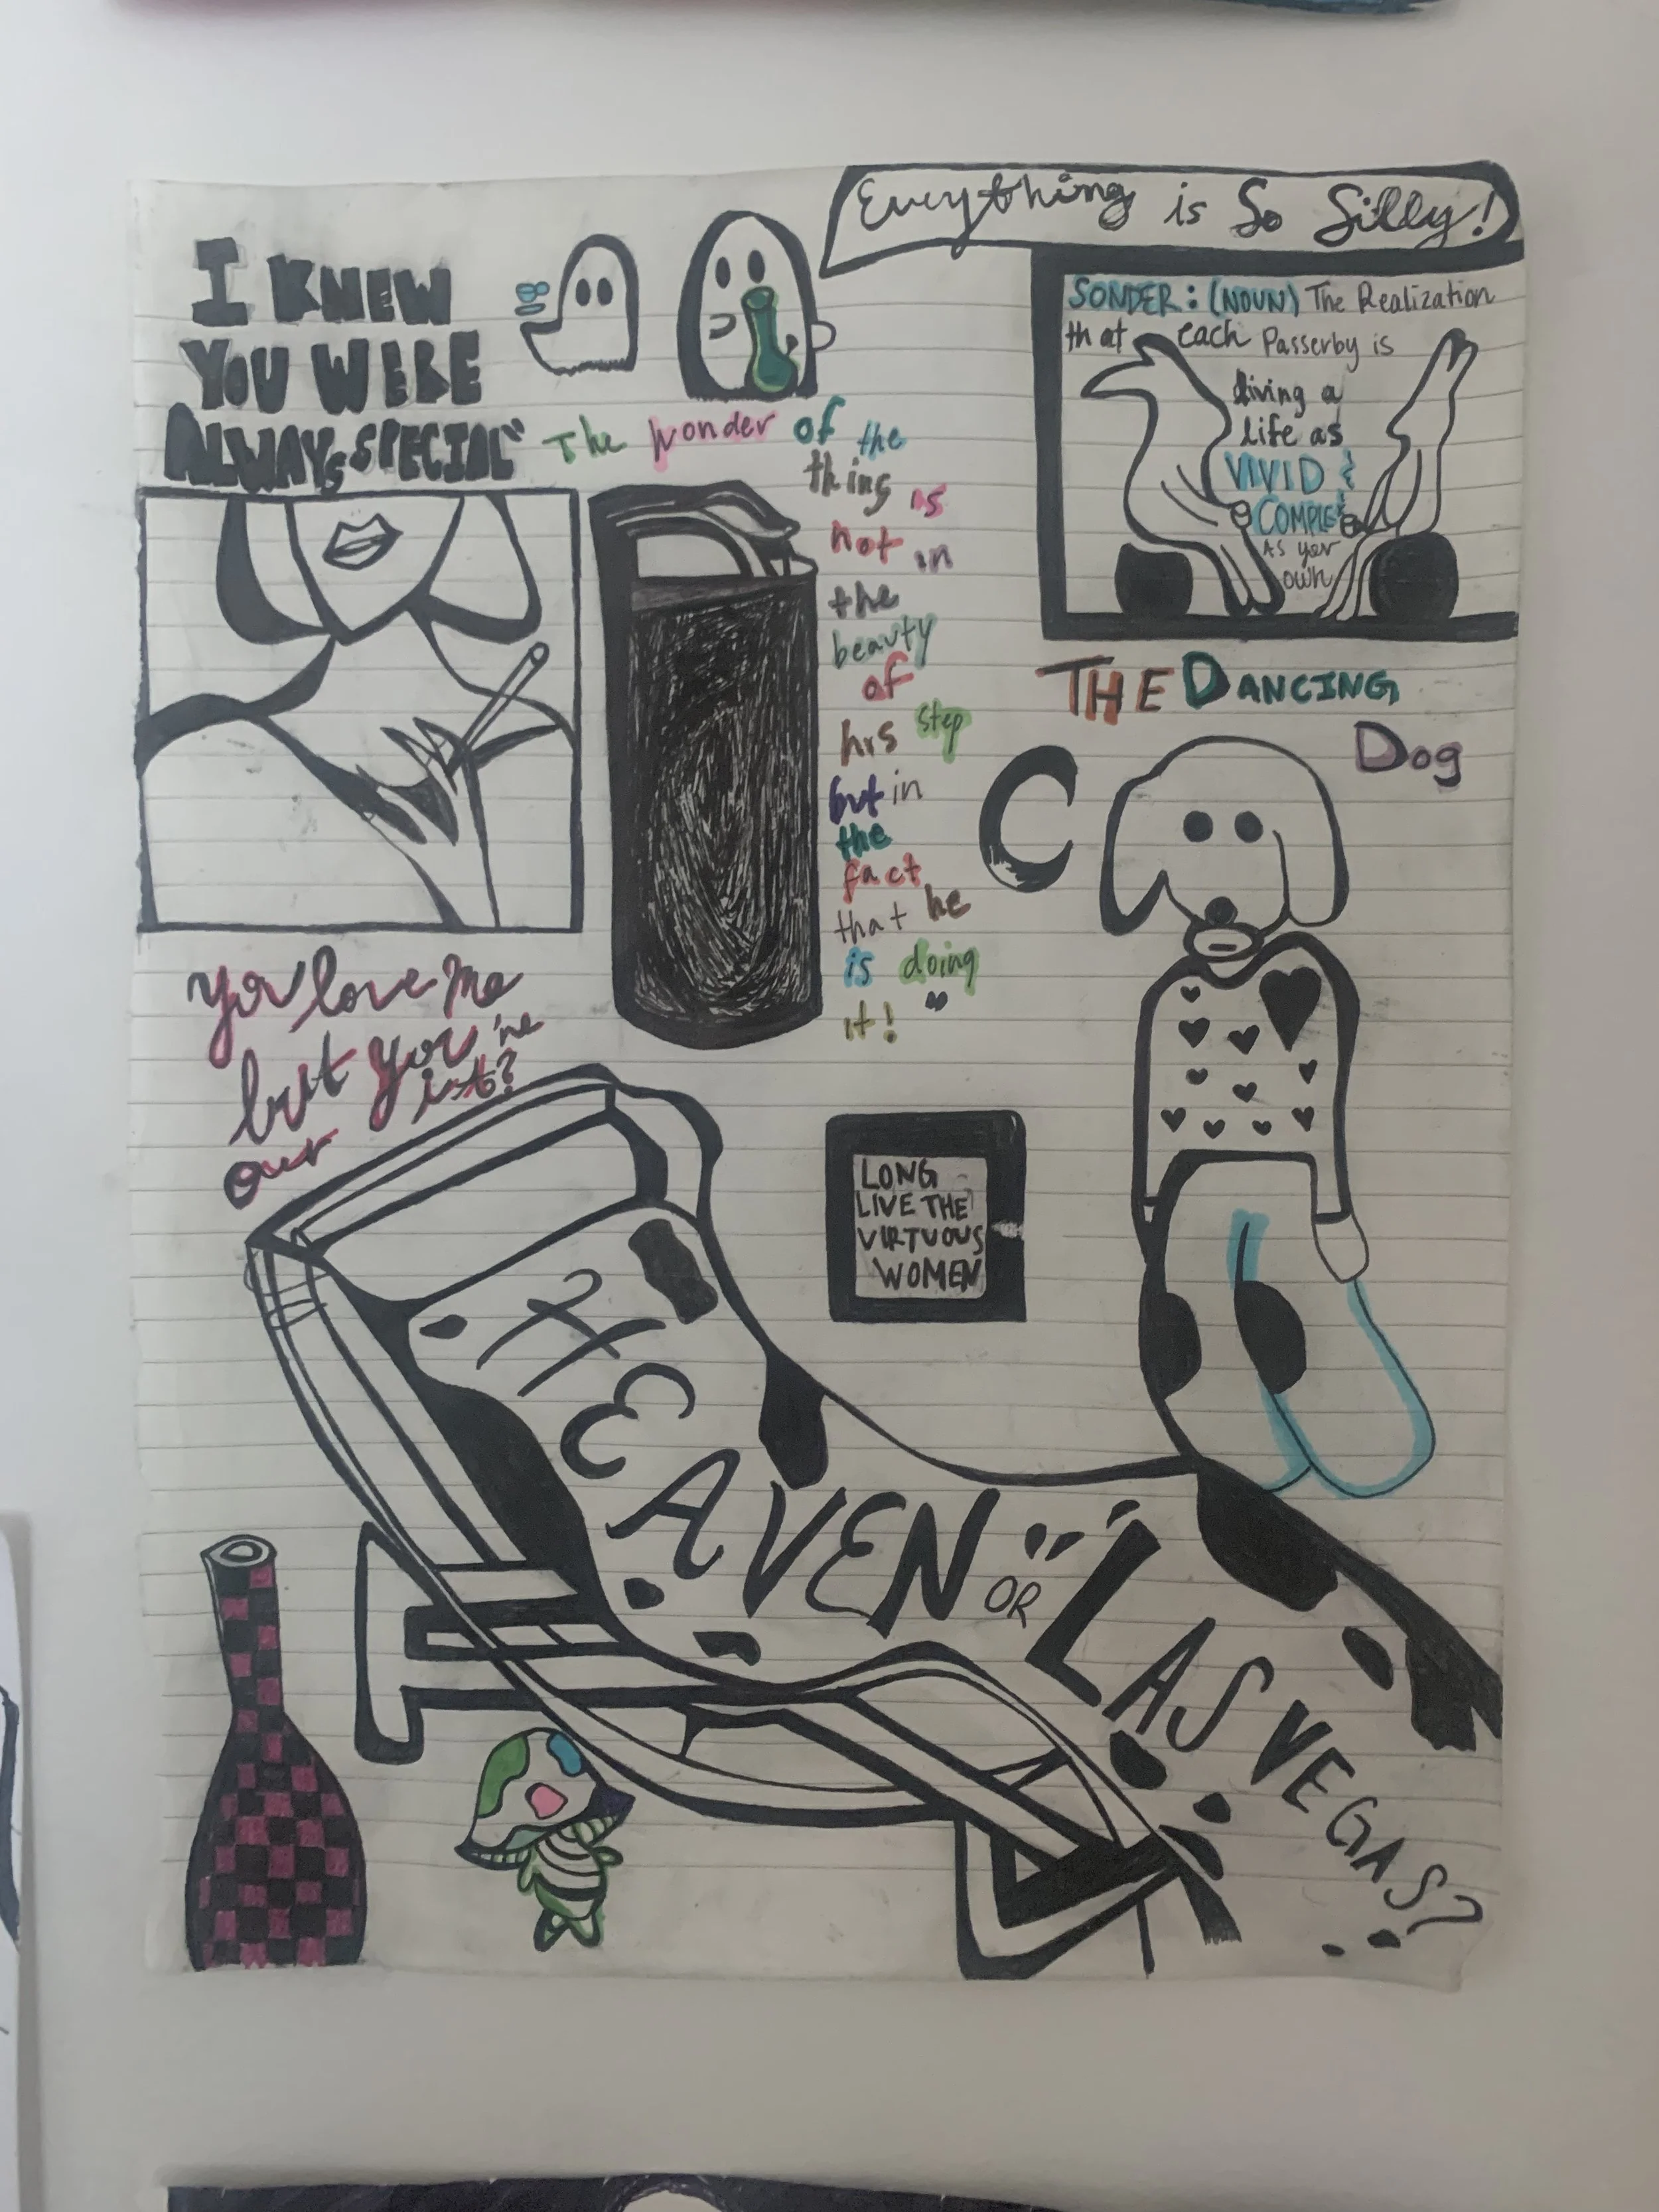 Everything is So Silly!
I KNEW
YOU WERE
ALWAYS SPECIAL
SONDER: (NOUN) The Realization
that each Passerby is
living a
life as
VIVID &
COMPLEX
AS your
own
The Wonder of the
thing is
not in
the
beauty
of
his step
but in
the
fact
that he
is doing
it!
THE DANCING
Dog
you love me
but you're
our
LONG
LIVE THE
VIRTUOUS
WOMEN
HEAVEN OR LAS VEGAS?